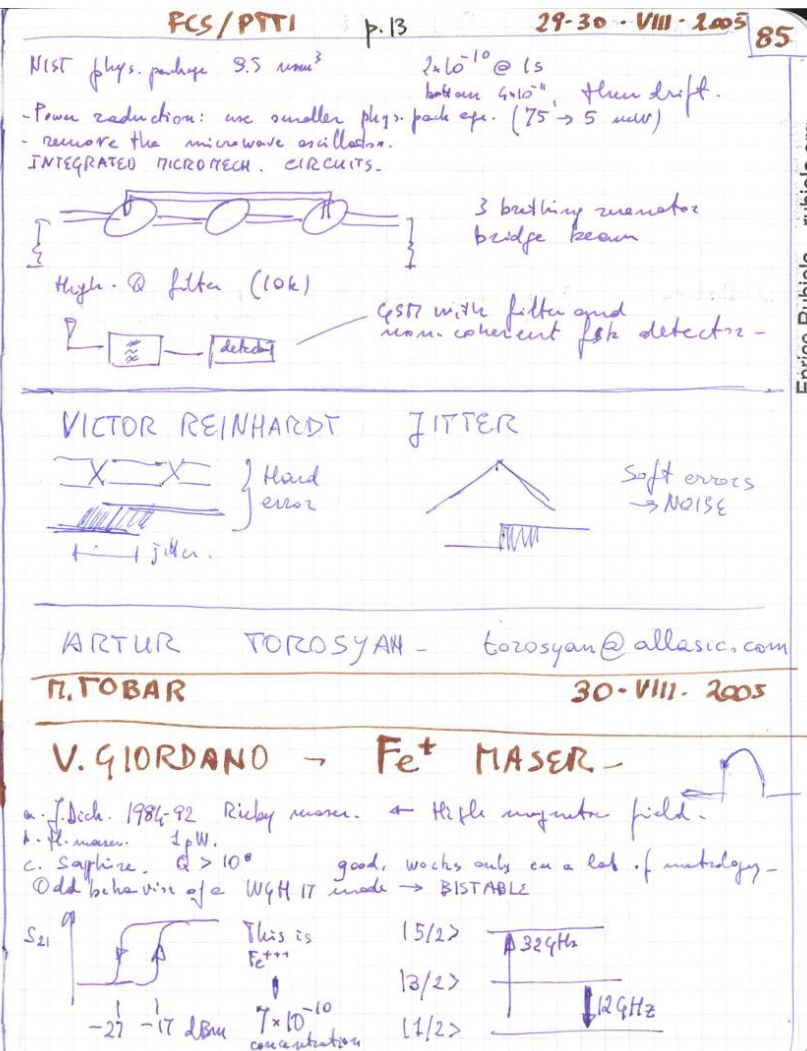 FCS/PTTI p.13 29-30 · VIII · 2005 85
NIST phys. package 9.5 mm³ 2×10⁻¹⁰ @ 1s
bottom 4×10⁻¹¹, then drift.
- Power reduction: use smaller phys. package. (75 → 5 mW)
- remove the microwave oscillator.
INTEGRATED MICROMECH. CIRCUITS.
3 brething resonator
bridge beam
High-Q filter (10k)
GSM with filter and
non-coherent fsk detector -
detector
VICTOR REINHARDT JITTER
Hard
error
Soft errors
→ NOISE
jitter.
ARTUR TOROSYAN - torosyan@allasic.com
M. TOBAR 30 · VIII · 2005
V. GIORDANO - Fe⁺ MASER -
a. J. Dick. 1984-92 Ruby maser. ← High magnetic field.
b. H. maser. 1pW.
c. Sapphire. good, works only in a lab of metrology -
Odd behavior of a WGH 17 mode → BISTABLE
S₂₁
This is
Fe⁺⁺⁺
7×10⁻¹⁰
concentration
-27 -17 dBm
|5/2>
|3/2>
|1/2>
32 GHz
12 GHz
Enrico Rubiola